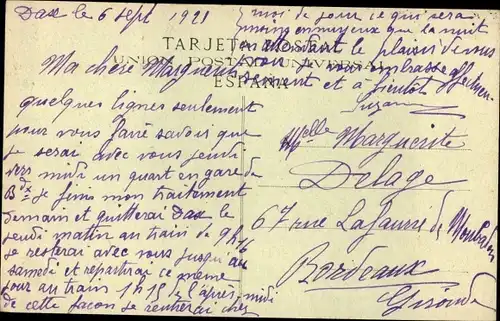 Dax le 6 sept 1921
TARJETA POSTAL
UNION POSTAL UNIVERSAL
ESPAÑA
Ma chère Marguerite
quelques lignes seulement
pour vous faire savoir que
je serai avec vous jeudi
vers midi un quart en gare de
Bdx je finis mon traitement
demain et quitterai Dax le
jeudi matin au train de 9h16
je resterai avec vous jusqu'au
samedi et repartirai ce même
jour au train 1h15 de l'après-midi
de cette façon je rentrerai chez
moi de jour ce qui serait
moins ennuyeux que la nuit
en attendant le plaisir de vous
voir je vous embrasse affectueu-
sement et à bientôt
Suzanne
Mlle Marguerite
Delage
67 rue
Bordeaux
Gironde